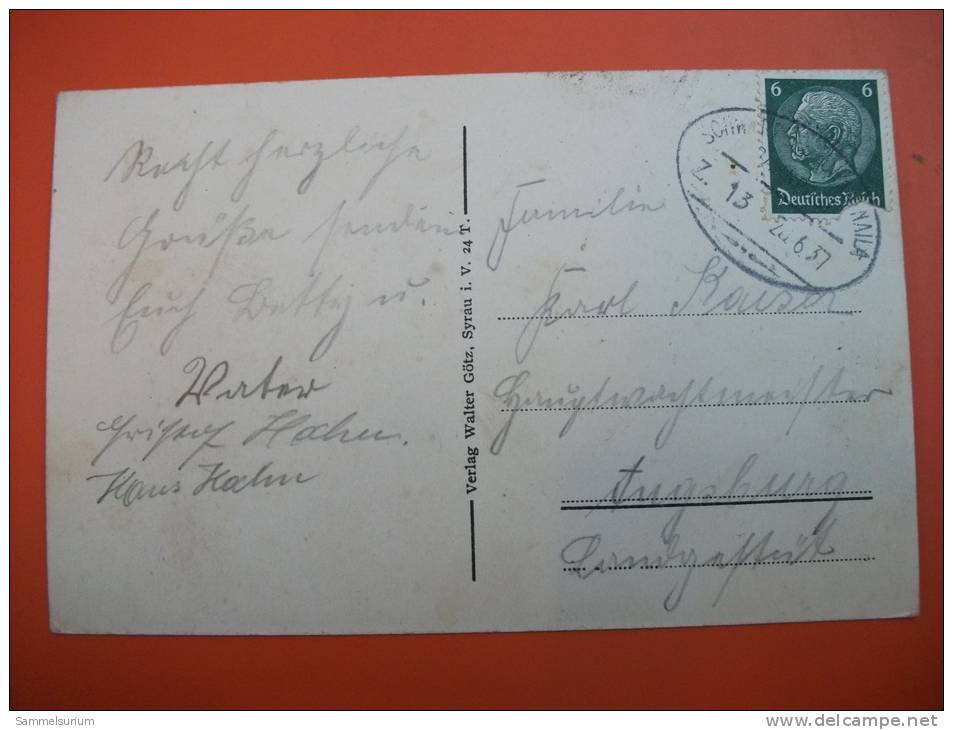 Recht herzliche
Grüße senden
Euch Betty u.
Vater
Hahn.
Hans Hahn
Verlag Walter Götz, Syrau i. V. 24 T.
6 6
Deutsches Reich
NAILA
Z. 13
6.37
Familie
Karl Kaiser
Hauptwachtmeister
Augsburg
Landgestüt
Sammelsurium
www.delcampe.net